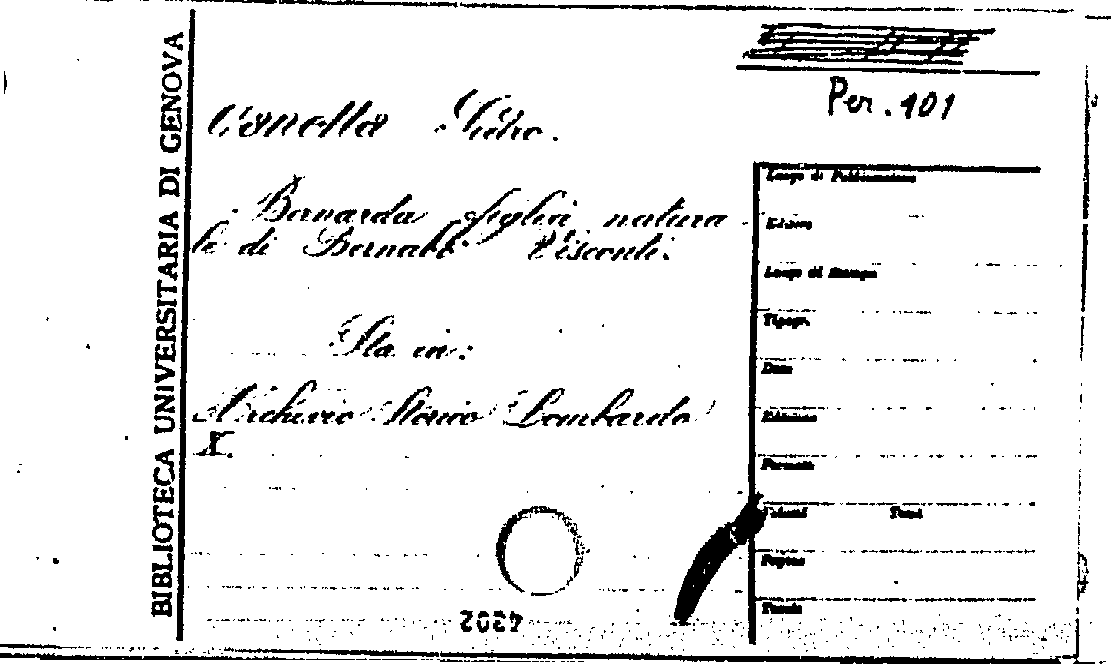 BIBLIOTECA UNIVERSITARIA DI GENOVA
Per. 101
Canetta Pietro.
Bernarda figlia natura-
le di Bernabò Visconti.
Sta in:
Archivio Storico Lombardo
X.
Luogo di Pubblicazione
Editore
Luogo di Stampa
Tipogr.
Data
Edizione
Formato
Volumi Tomi
Pagine
Tavole
4202